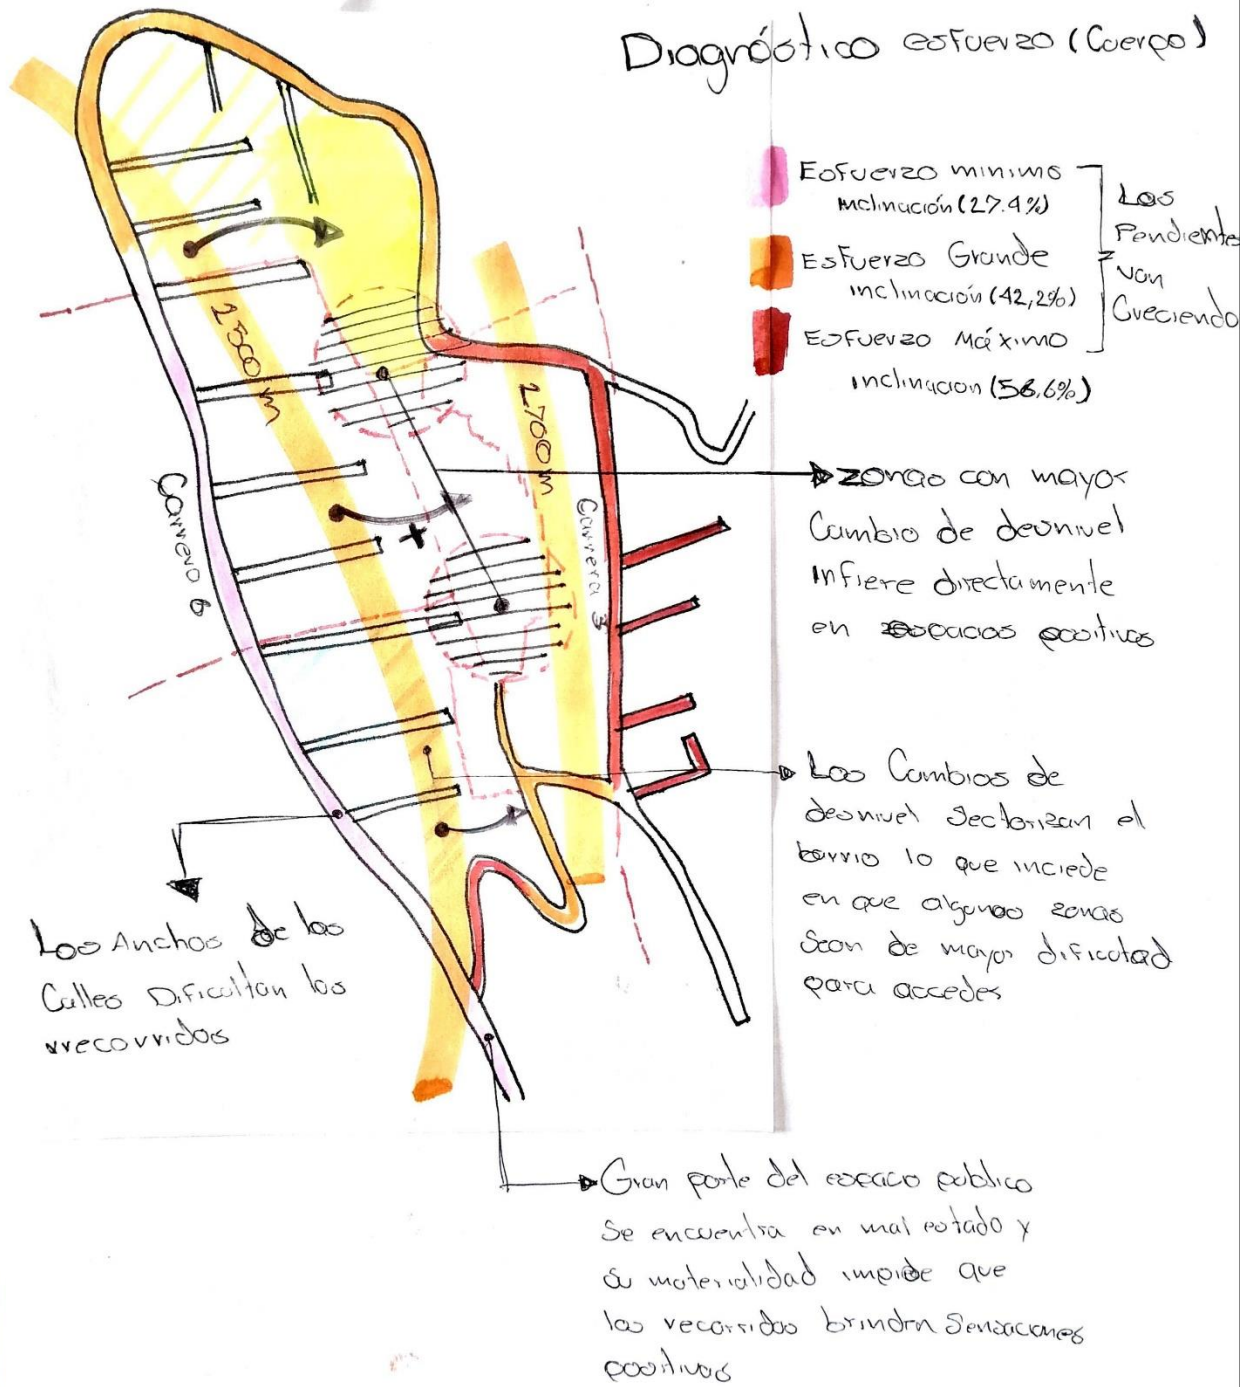 Diagnóstico esfuerzo (Cuerpo)
Esfuerzo minimo
inclinación (27.4%)
Esfuerzo Grande
inclinación (42,2%)
Esfuerzo Máximo
inclinacion (56.6%)
Las
Pendiente
van
Creciendo
2500 m
2700 m
Carrera 6
Carrera 3
+
zonas con mayor
Cambio de desnivel
infiere directamente
en espacios positivos
Los Cambios de
desnivel Sectorizan el
barrio lo que inciede
en que algunas zonas
Sean de mayor dificultad
para acceder
Los Anchos de las
Calles Dificultan los
rrecorridos
Gran parte del espacio público
Se encuentra en mal estado y
su materialidad impide que
los recorridos brinden Sensaciones
positivas